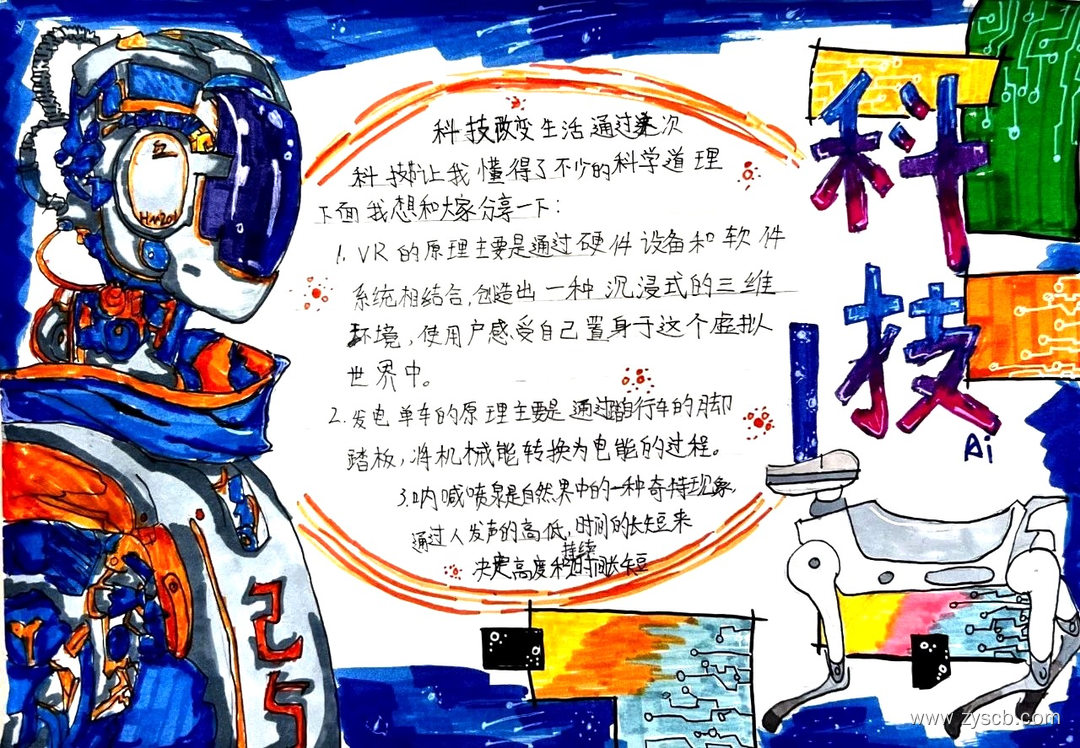 科技改变生活通过这次
科技让我懂得了不少的科学道理
下面我想和大家分享一下：
1. VR的原理主要是通过硬件设备和软件
系统相结合，创造出一种沉浸式的三维
环境，使用户感受自己置身于这个虚拟
世界中。
2. 发电单车的原理主要是通过踏自行车的脚
踏板，将机械能转换为电能的过程。
3. 呐喊喷泉是自然界中的一种奇特现象，
通过人发声的高低，时间的长短来
决定高度和持续时间长短
科技
Ai
HM201
25
www.zyscb.com